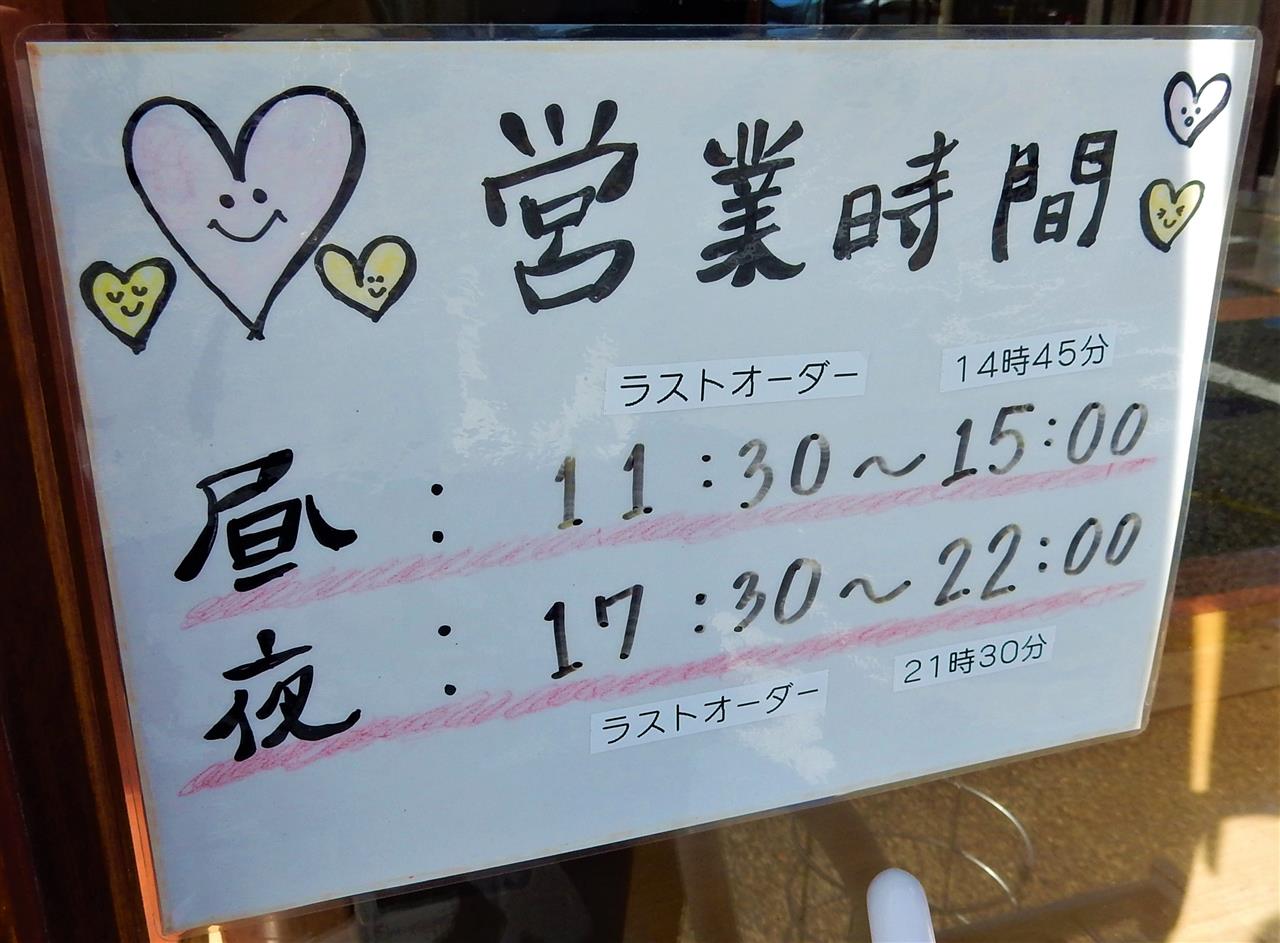 営業時間
ラストオーダー 14時45分
昼 : 11:30～15:00
夜 : 17:30～22:00
ラストオーダー 21時30分